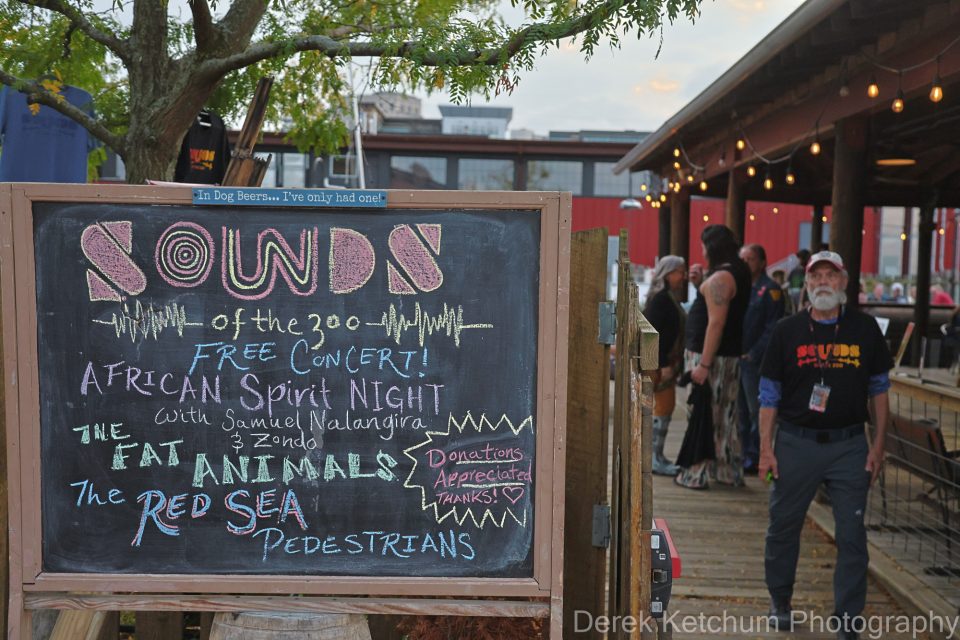 In Dog Beers... I've only had one!
SOUNDS
of the 300
FREE CONCERT!
AFRICAN Spirit NIGHT
with Samuel Nalangira
& Zondo
THE
FAT ANIMALS
The RED SEA
PEDESTRIANS
Donations
Appreciated
THANKS!
SOUNDS
Derek Ketchum Photography